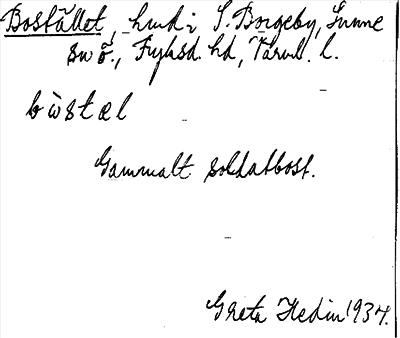 Bostället, hmd i S. Borgeby, Sunne
sn ö., Fryksd. hd, Värml. l.
bòstæl
Gammalt soldatbost.
Greta Hedin 1934.